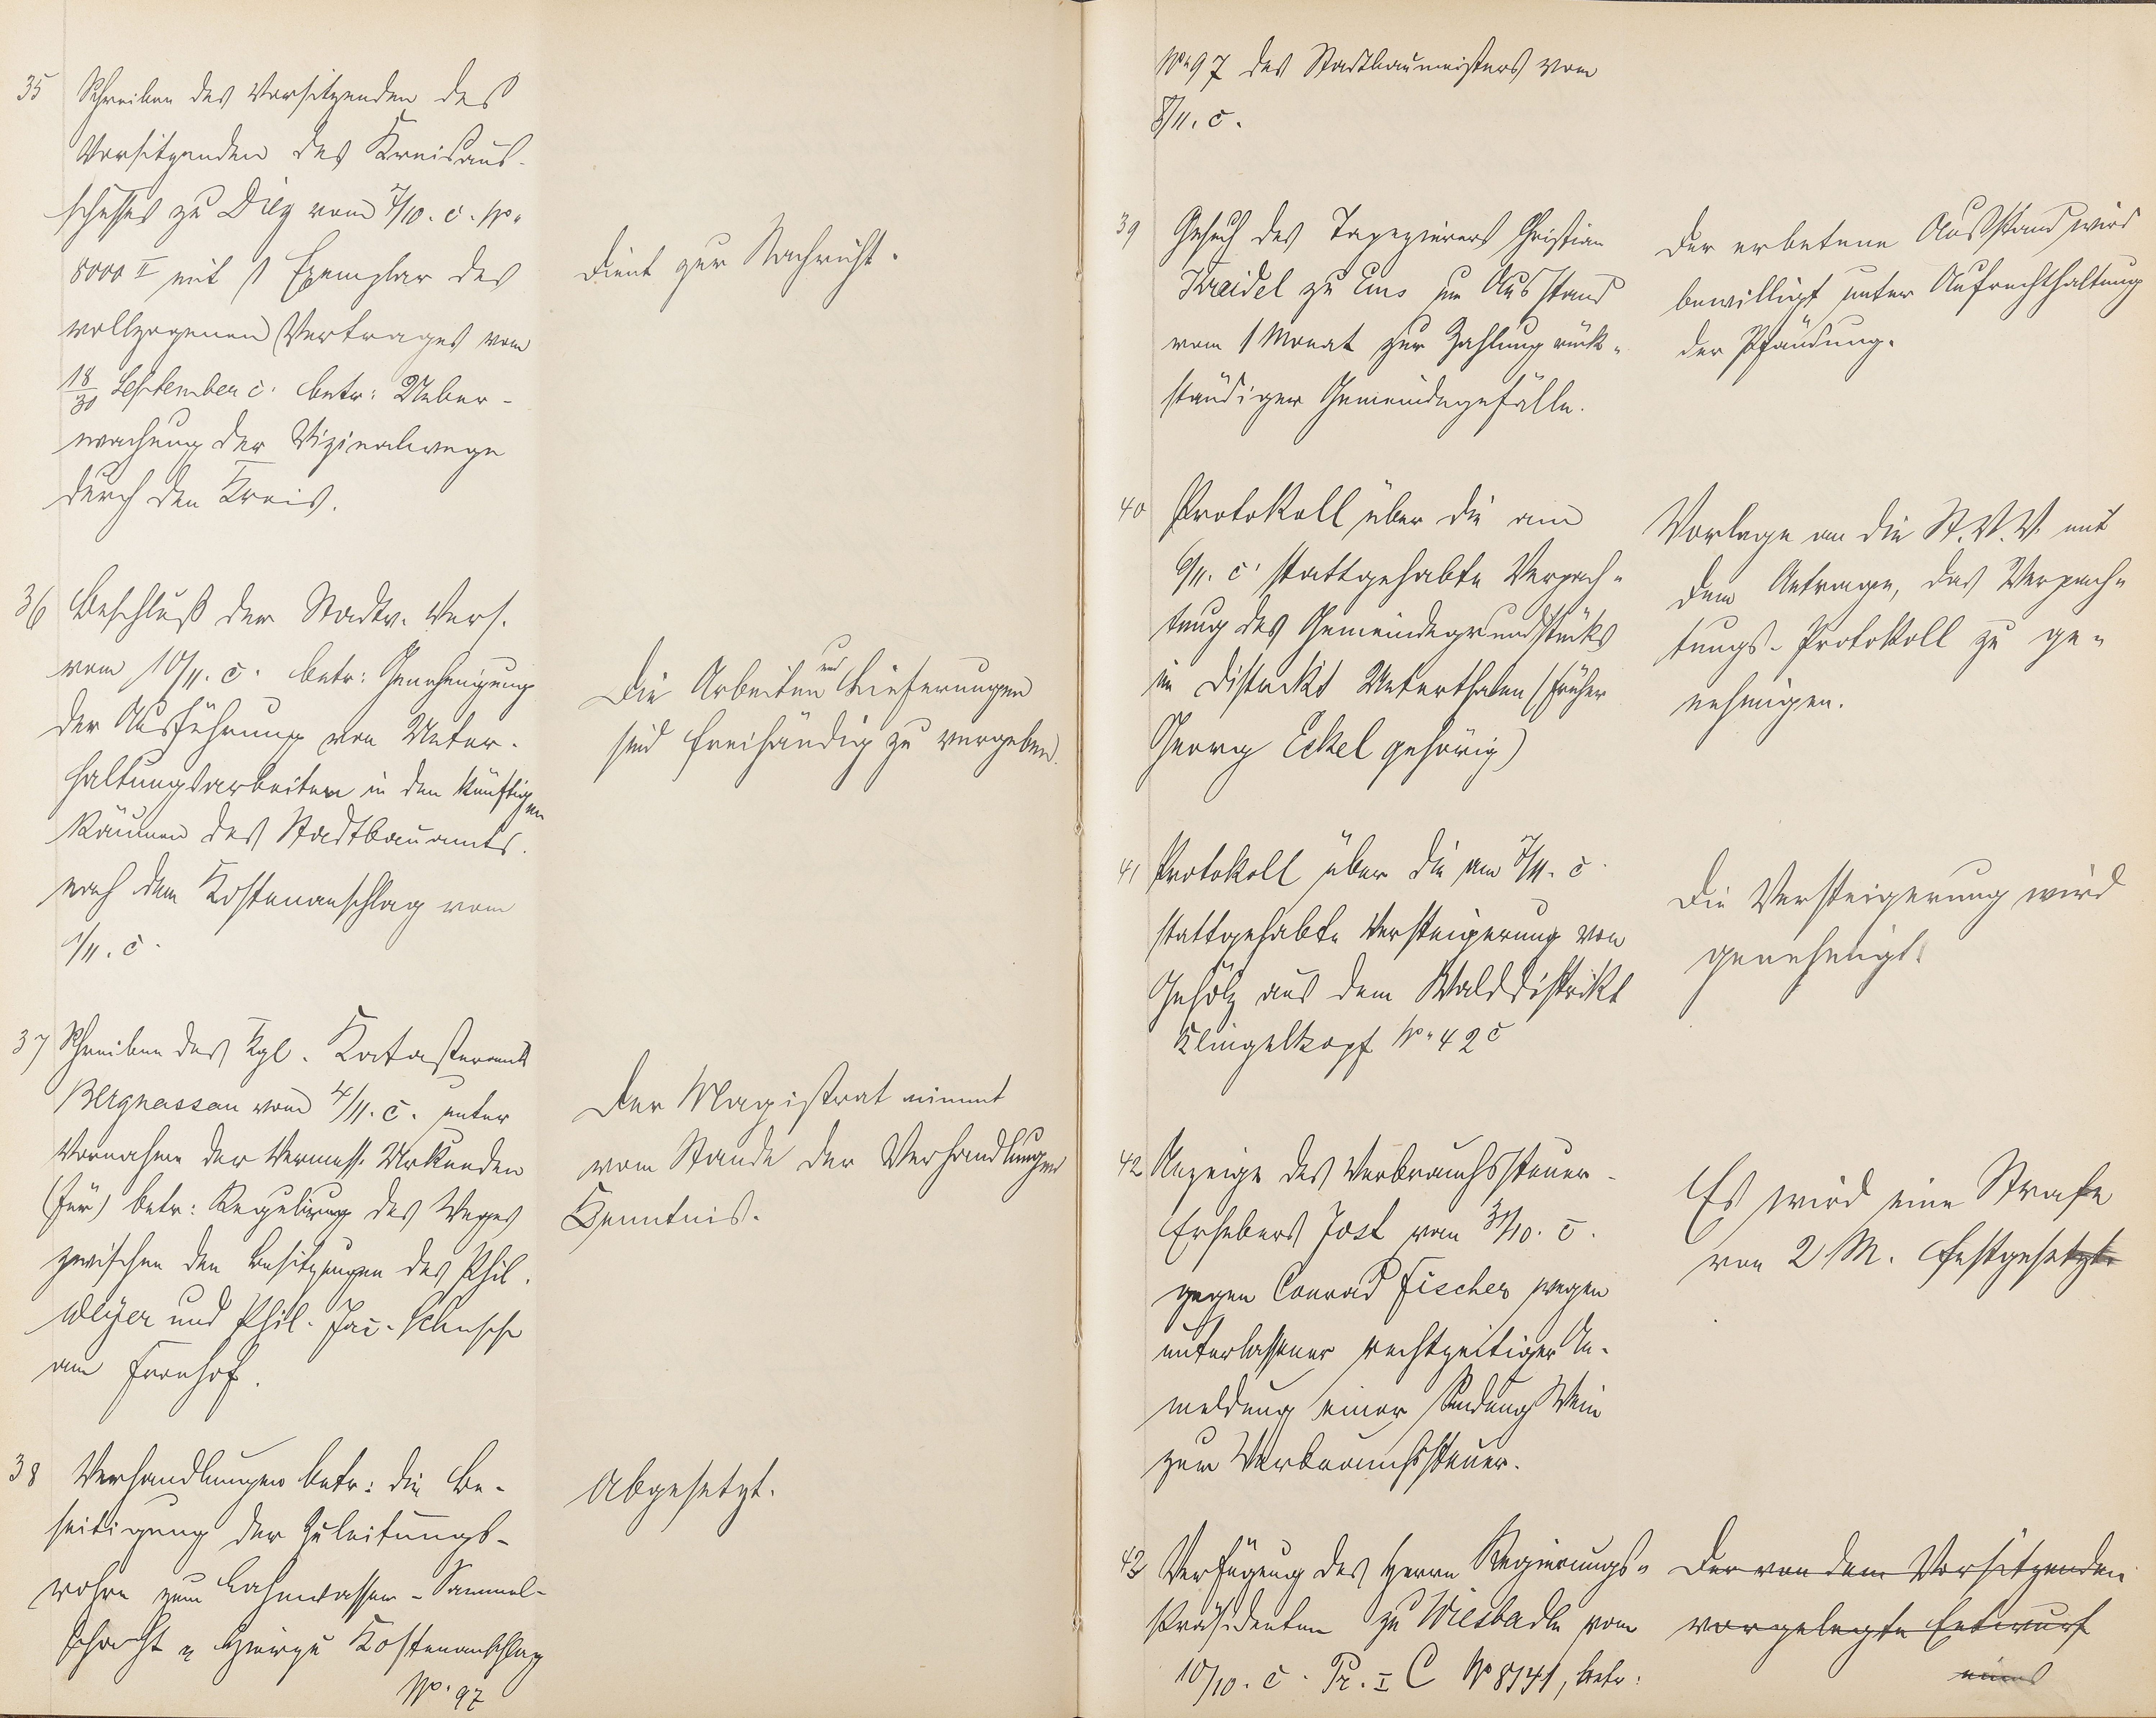 35 Schreiben des Vorsitzenden des
Vorsitzenden des Kreisaus-
schusses zu Diez vom 7/10. c. No.
8000 II mit 1 Exemplar des
vollzogenen Vertrages vom
18/30 September c. betr: Ueber-
wachung der Vizinalwege
durch den Kreis.
Dient zur Nachricht.
36 Beschluß der Stadtv. Vers.
vom 10/11. c. betr: Genehmigung
der Ausführung von Unter-
haltungsarbeiten in den künftigen
Räumen des Stadtbauamts.
nach dem Kostenanschlag vom
1/11. c.
Die Arbeiten und Lieferungen
sind freihändig zu vergeben.
37 Schreiben des Kgl. Katasteramts
Bergnassau vom 4/11. c. unter
Vornahme der Vermess. Urkunden
(für) betr: Regulirung des Weges
zwischen den Besitzungen des Phil.
und Phil. Jac.
am Fronhof.
Der Magistrat nimmt
vom Stande der Verhandlungen
Kenntnis.
38 Verhandlungen betr: die Be-
seitigung der Zuleitungs-
rohre zum Lahnwasser-Sammel-
schacht u hierzu Kostenanschlag
No. 97
Abgesetzt.
No. 97 des Stadtbaumeisters vom
8/11. c.
39 Gesuch des Tapezierers Christian
Kraidel zu Ems um Ausstand
von 1 Monat zur Zahlung rück-
ständiger Gemeindegefälle.
Der erbetene Ausstand wird
bewilligt unter Aufrechthaltung
der Pfändung.
40 Protokoll über die am
6/11. c. stattgehabte Verpach-
tung des Gemeindegrundstücks
im Distrikt Unterthalen (früher
Georg Eckel gehörig)
Vorlage an die St. V. V. mit
dem Antrage, das Verpach-
tungs-Protokoll zu ge-
nehmigen.
41 Protokoll über die am 7/11. c.
stattgehabte Versteigerung von
Gehölz aus dem Walddistrikt
Klingelkopf No. 42 c
Die Versteigerung wird
genehmigt.
42 Anzeige des Verbrauchssteuer-
Erhebers Jost vom 31/10. c.
gegen Conrad Fischer wegen
unterlassener rechtzeitiger An-
meldung einer Sendung Wein
zur Verbrauchssteuer.
Es wird eine Strafe
von 2 M. festgesetzt.
43 Verfügung des Herrn Regierungs-
Präsidenten zu Wiesbaden vom
10/10. c. Pr. I C No 8141, betr:
Der von dem Vorsitzenden
vorgelegte Entwurf
eines